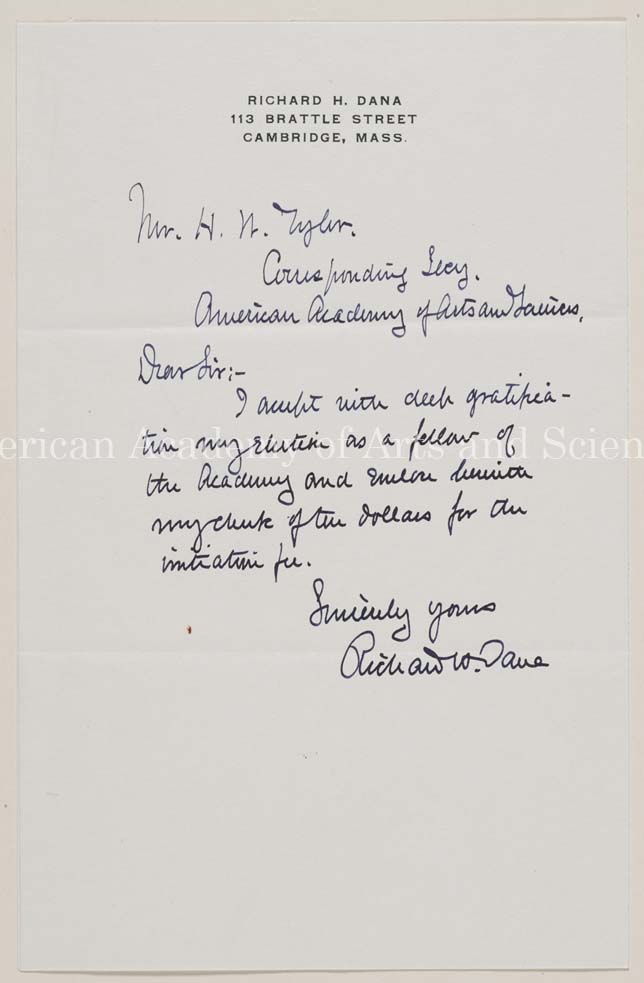 RICHARD H. DANA
113 BRATTLE STREET
CAMBRIDGE, MASS.
Mr. H. W. Tyler.
Corresponding Secy.
American Academy of Arts and Sciences,
Dear Sir:-
I accept with deep gratifica-
tion my election as a fellow of
American Academy of Arts and Scien
the Academy and enclose herewith
my check of ten dollars for the
initiation fee.
Sincerely yours
Richard H. Dana